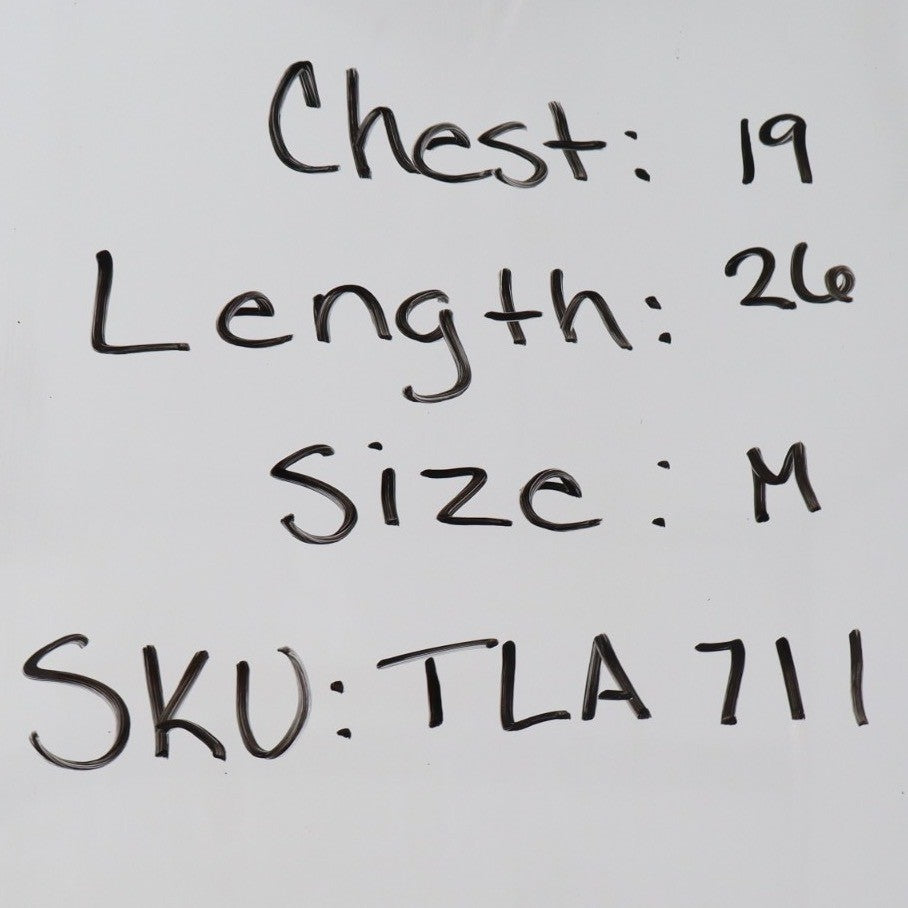 Chest: 19
Length: 26
Size: M
SKU: TLA 711